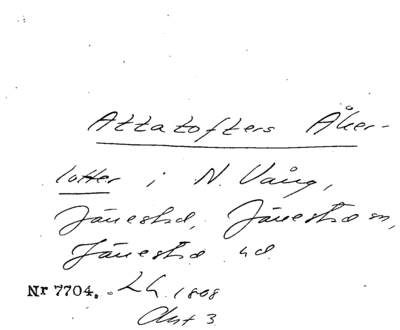 Attatofters Åker-
lotter i N. Vång,
Järestad, Järestads sn,
Järestads hd.
Nr 7704. LG. 1808
Akt 3